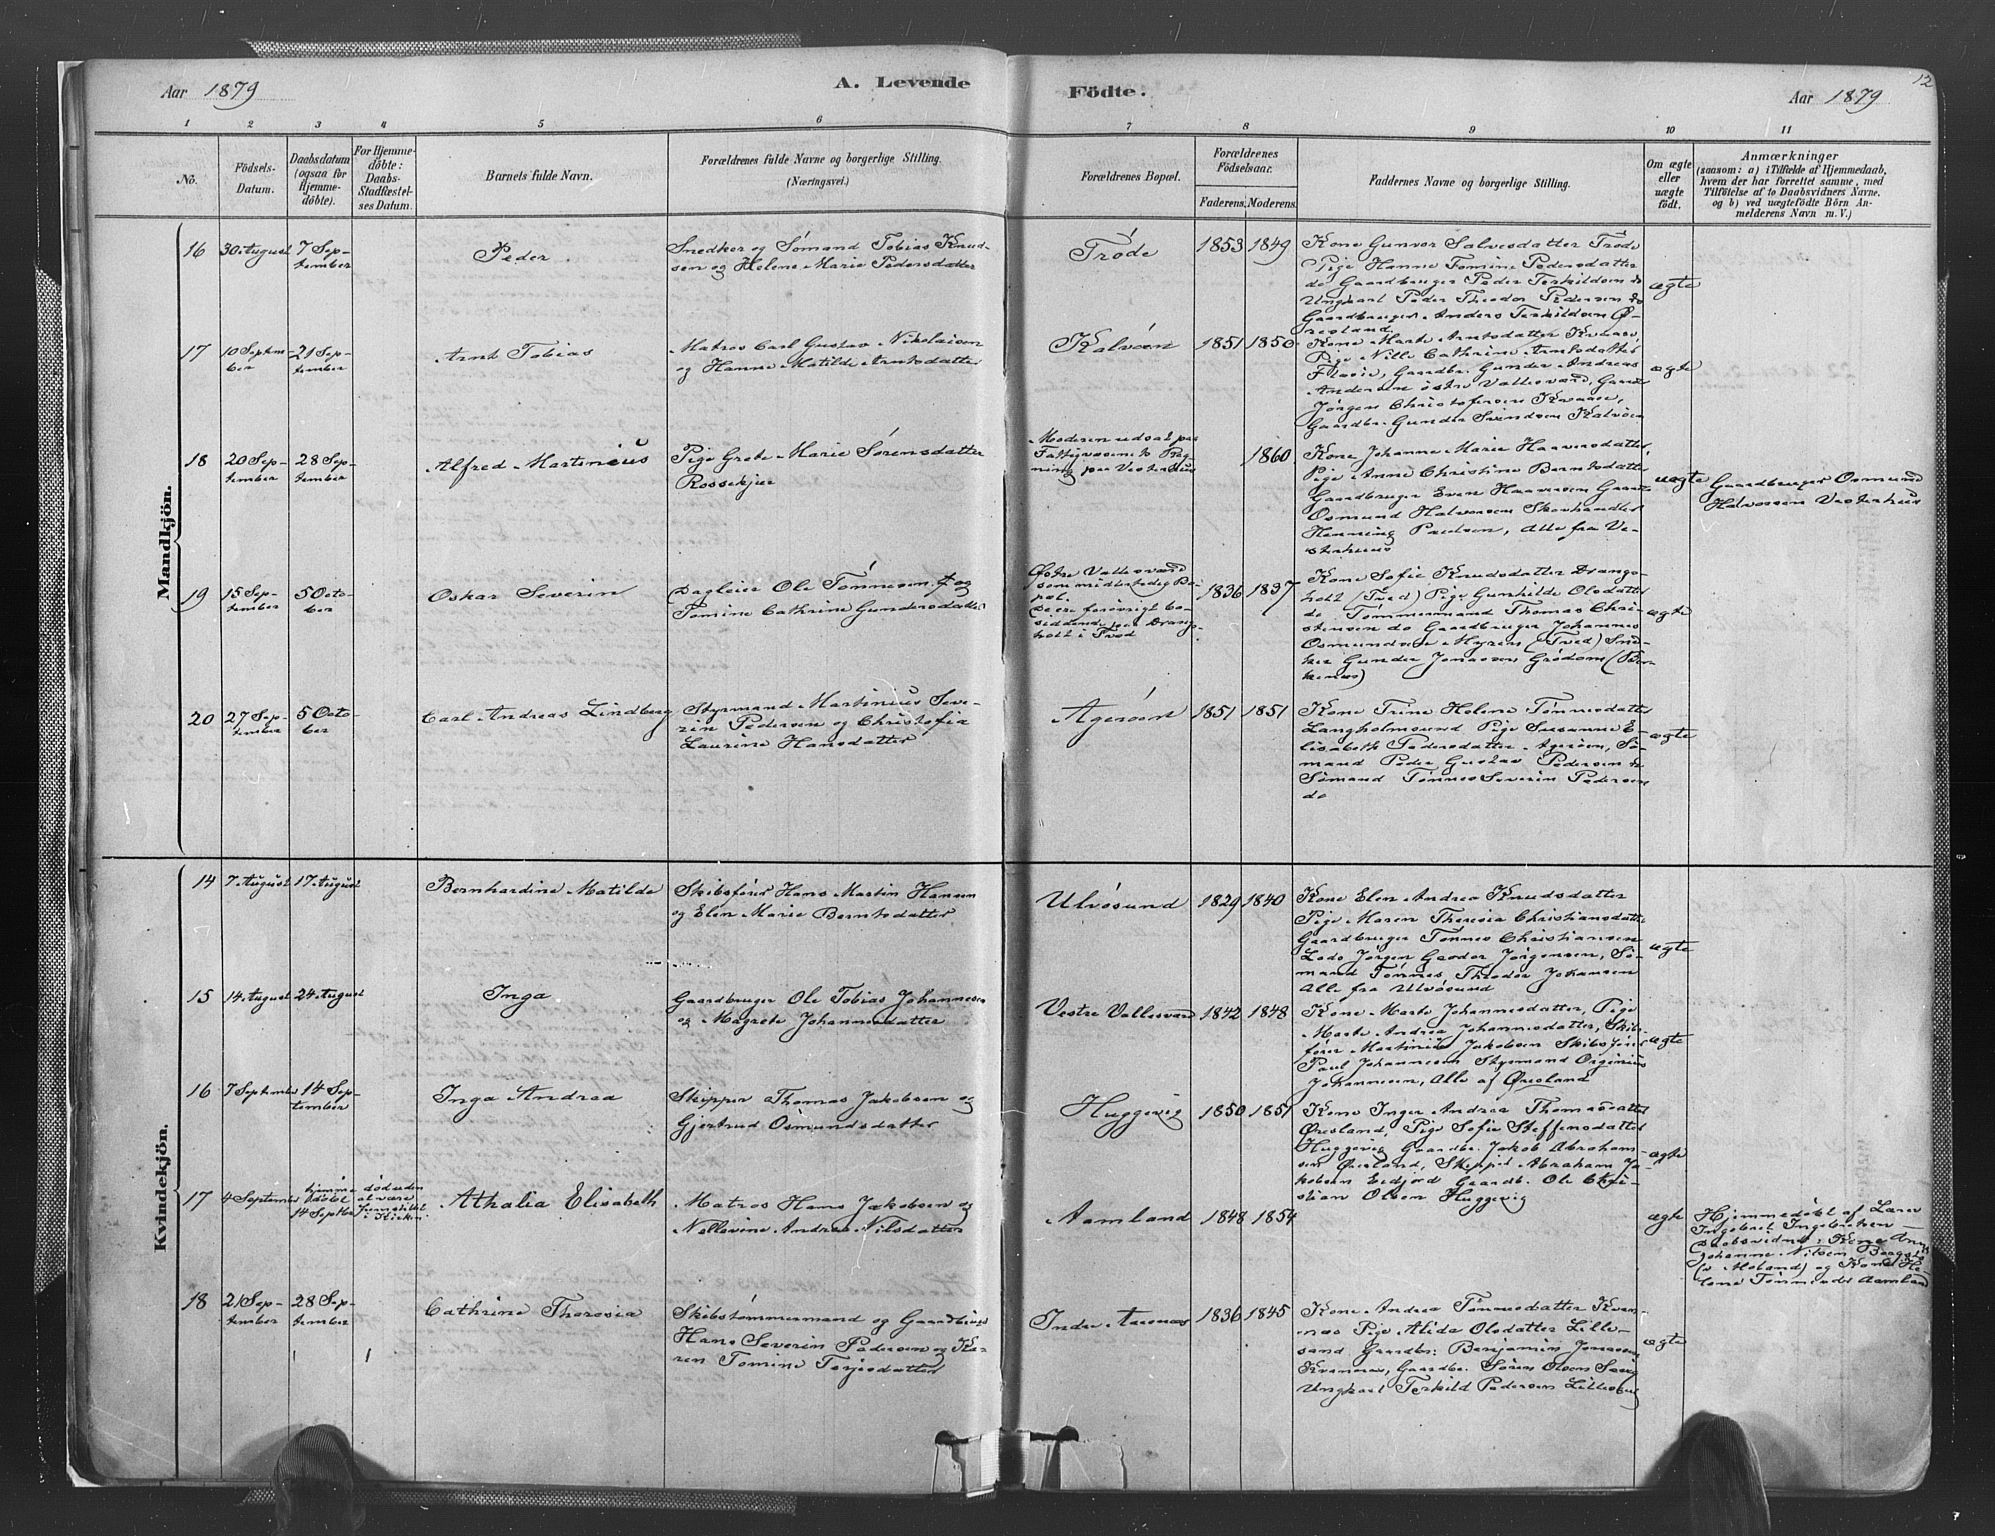 Aar 1879
A. Levende
Födte.
Aar 1879
12
1
2
3
4
5
6
7
8
9
10
11
No.
Födsels-
Datum.
Daabsdatum
(ogsaa for
Hjemme-
döbte).
For Hjemme-
döbte:
Daabs-
Stadfæstel-
ses Datum.
Barnets fulde Navn.
Forældrenes fulde Navne og borgerlige Stilling.
(Næringsvei.)
Forældrenes Bopæl.
Forældrenes
Födselsaar.
Faderens.
Moderens.
Faddernes Navne og borgerlige Stilling.
Om ægte
eller
uægte
födt.
Anmærkninger
(saasom: a) i Tilfælde af Hjemmedaab,
hvem der har forrettet samme, med
Tilföielse af to Daabsvidners Navne.
og b) ved uægtefödte Börn An-
melderens Navn m. V.)
Mandkjön.
16
30 August
7 Sep-
tember
Peder
Snedker og Sømand Tobias Knud-
sen og Helene Marie Pedersdatter
Trøde
1853
1849
Kone Gunvor Salvesdatter Trøde
Pige Hanne Tomine Pedersdatter
do Gaardbruger Peder Terkildsen do
Ungkarl Peder Theodor Pedersen do
Gaardbruger Anders Terkildsen Ø-
resland
ægte
17
10 Septem-
ber
21 Sep-
tember
Arnt Tobias
Matros Carl Gustav Nikolaisen
og Hanne Matilde Arntsdatter
Kalvøen
1851
1850
Kone Marte Arntsdatter Kvaase,
Pige Nille Cathrine Arntsdatter
Gaardbr. Gunder Andreas
Andersen østre Vallesværd, Gaardbr.
Jørgen Christofersen Kvaase,
Gaardbr. Gunder Svindsen Kalvøen
ægte
18
20 Sep-
tember
28 Sep-
tember
Alfred Martinius
Pige Grete Marie Sørensdatter
Rossekjær
Moderen udsat paa
Fattigvæsenets Reg-
ning paa Vesterhus
1860
Kone Johanne Marie Haaversdatter,
Pige Anne Christine Berntsdatter
Gaardbruger Even Haaversen Gaardbr.
Osmund Halvorsen Skovhandler
Henning Paulsen, alle fra Ve-
sterhuus
uægte
Gaardbruger Osmund
Halvorsen Vesterhus
19
15 Sep-
tember
5 Octo-
ber
Oskar Severin
Dagleier Ole Tønnesen og
Tomine Cathrine Gundersdatter
Østre Vallesværd
som midlertidig Bo-
pæl.
De ere forøvrigt bo-
siddende paa Drang-
holt i Tved
1836
1837
Kone Sofie Knudsdatter Drangs-
holt (Tved) Pige Gunhilde Olsdatter
do Tømmermand Thomas Chri-
stensen do Gaardbruger Johannes
Osmundsen Myren (Tved) Sned-
ker Gunder Jonassen Grødom (Bir-
kenes)
ægte
20
27 Sep-
tember
5 Octo-
ber
Carl Andreas Lindberg
Styrmand Martinius Seve-
rin Pedersen og Christofia
Laurine Hansdatter
Agerøen
1851
1851
Kone Trine Helene Tønnesdatter
Langholmsund Pige Susanne E-
lisabeth Pedersdatter Agerøen, Sø-
mand Peder Gustav Pedersen do
Sømand Tønnes Severin Pedersen
do
ægte
Kvindekjön.
14
7 August
17 August
Bernhardine Matilde
Skibsfører Hans Martin Hansen
og Elen Marie Berntsdatter
Ulvøsund
1829
1840
Kone Elen Andrea Knudsdatter
Pige Maren Theresia Christiansdatter
Gaardbruger Tønnes Christiansen
Lods Jørgen Georg Jørgensen, Sø-
mand Tønnes Theodor Johansen
Alle fra Ulvøsund
ægte
15
14 August
24 August
Inga
Gaardbruger Ole Tobias Johannesen
og Magrete Johannesdatter
Vestre Vallesværd
1842
1848
Kone Marte Johannesdatter, Pige
Marte Andrea Johannesdatter, Skibs-
fører Martinius Jakobsen Skibsfører
Paul Johannesen Styrmand Orginius
Johannesen, Alle af Øresland
ægte
16
7 September
14 Sep-
tember
Inga Andrea
Skipper Thomas Jakobsen og
Gjertrud Osmundsdatter
Huggevig
1850
1851
Kone Inger Andrea Thomasdatter
Øresland, Pige Sofie Steffensdatter
Huggevig Gaardbr. Jakob Abraham-
sen Øresland, Skipper Abraham Ja-
kobsen Eidjord Gaardb. Ole Chri-
stian Olsen Huggevig
ægte
17
4 September
hjemme
døbt
14 Septbr
død uden
at være
fremstillet
i Kirken
Athalia Elisabeth
Matros Hans Jakobsen og
Nellevine Andrea Nilsdatter
Aamland
1848
1854
ægte
Hjemmedøbt af Lærer
Ingebret Ingebretsen
Daabsvidner: Kone Anne
Johanne Nilsen
(v. Moland) og Kone He-
lene Tønnesdtr Aamland
18
21 Sep-
tember
28 Sep-
tember
Cathrine Theresia
Skibstømmermand og Gaardbruger
Hans Severin Pedersen og Ka-
ren Tomine Terjesdatter
Indre Aarnes
1836
1845
Kone Andrea Tønnesdatter Kvan-
nes Pige Alida Olsdatter Lille-
sand Gaardbr: Benjamin Jonassen
Kvannes, Gaardbr. Søren Olsen
Ungkarl Terkild Pedersen Lillesand
ægte